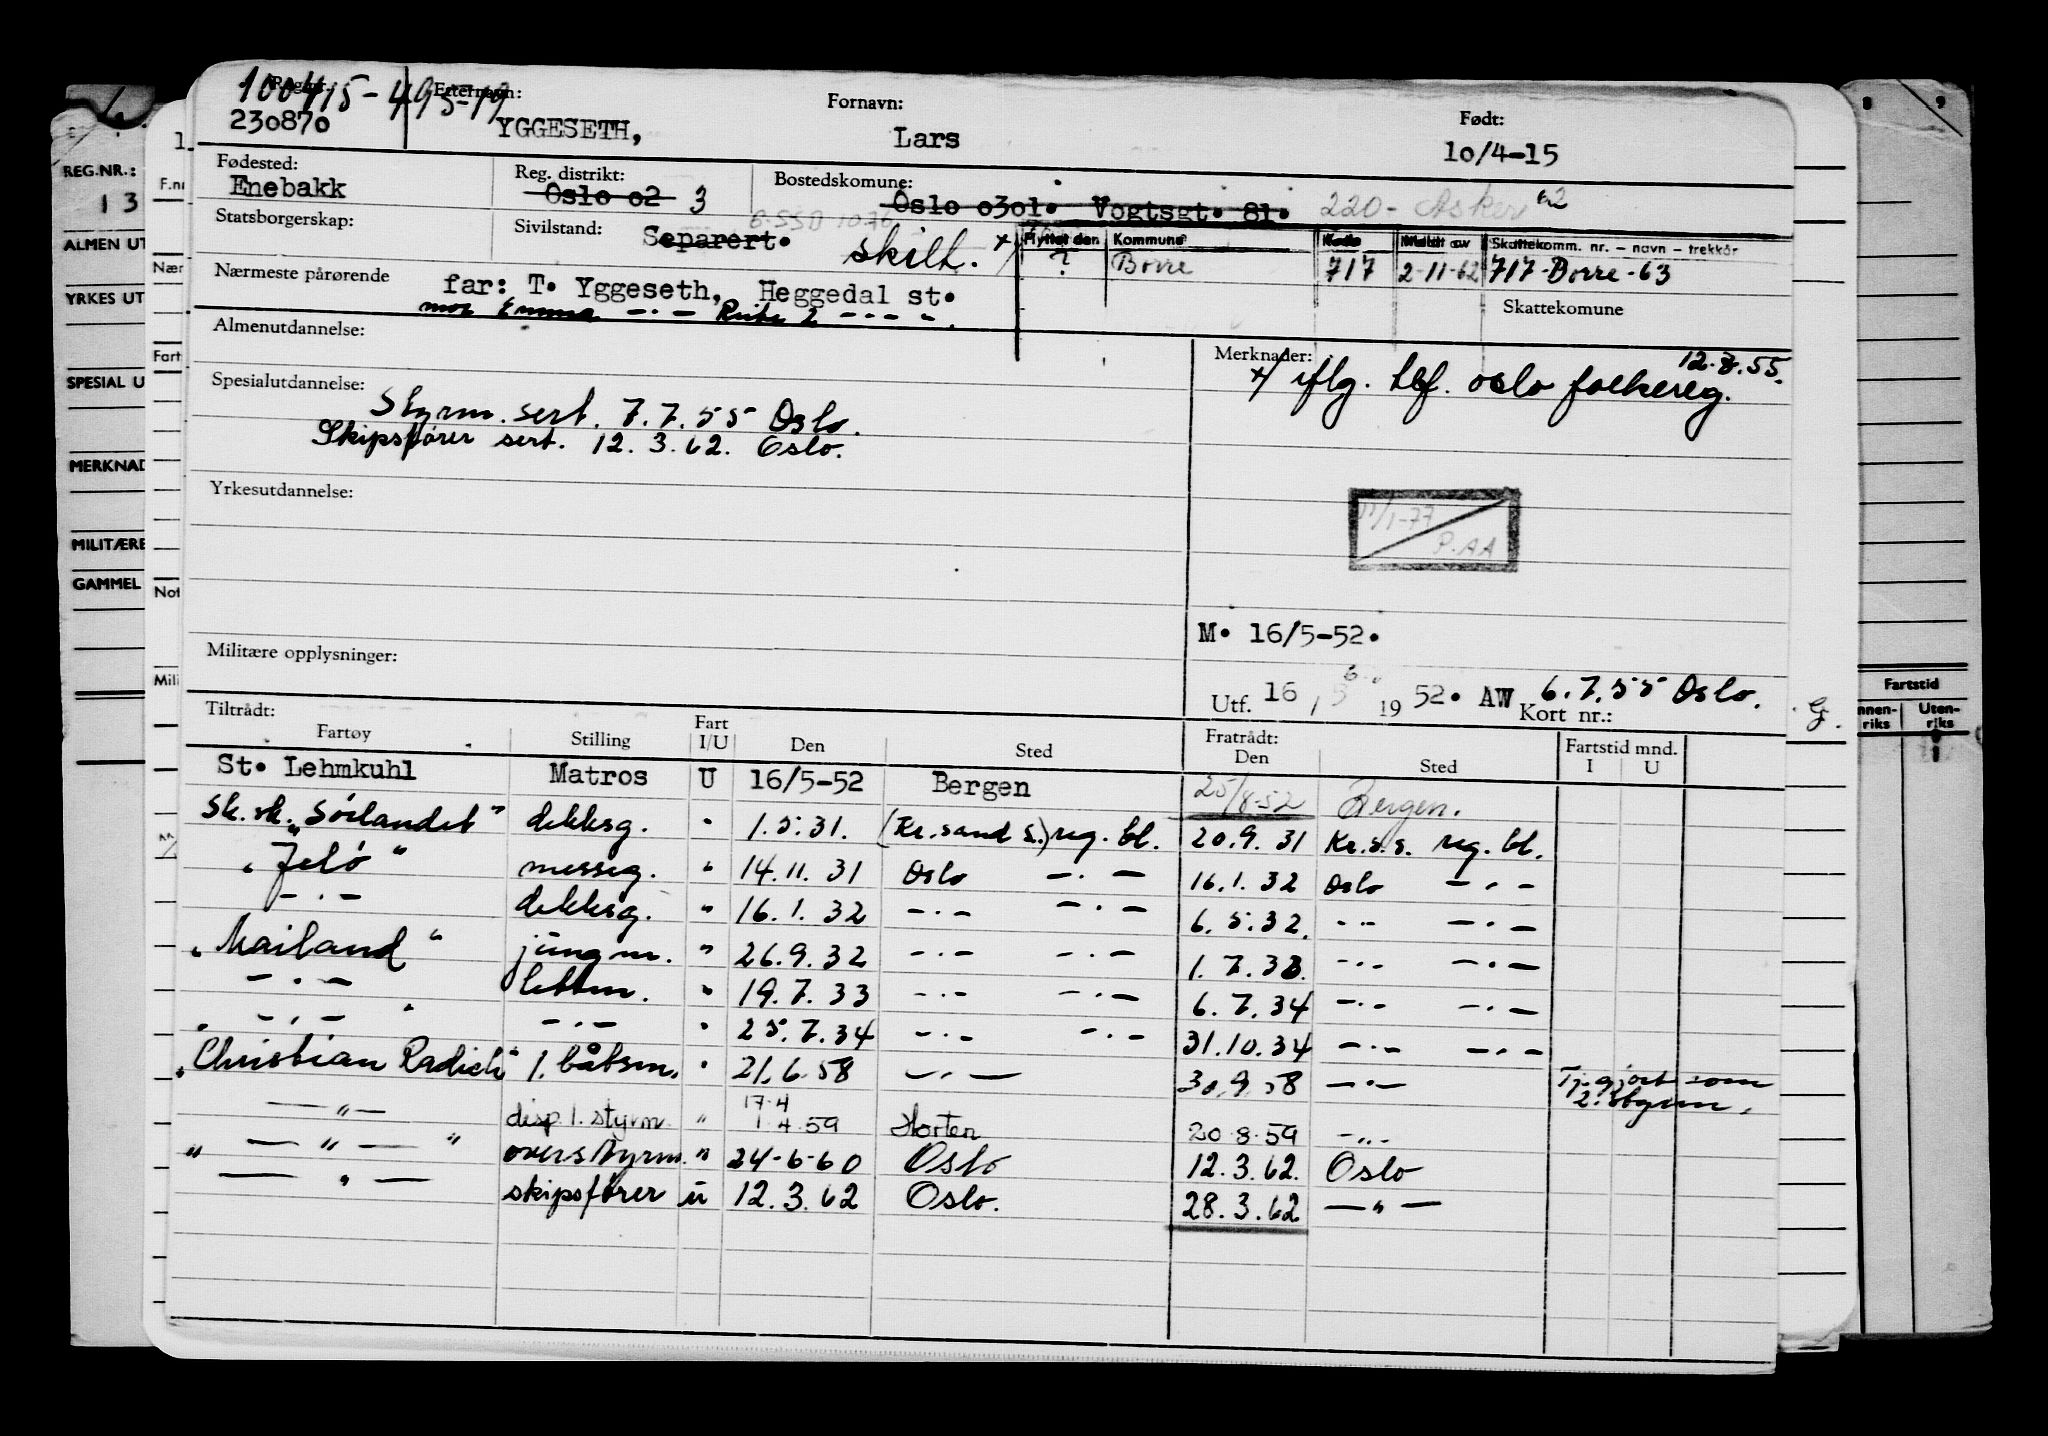 Reg.nr.: Etternavn: Fornavn: Født:
100415-495-19
230870 YGGESETH, Lars 10/4-15
Fødested: Reg. distrikt: Bostedskomune:
Enebakk Oslo 02 3 Oslo 0301. Vogtsgt. 81. 220- Asker
Statsborgerskap: Sivilstand: Separert. skilt. x/
Flyttet den Kommune Kode Meldt av Skattekomm. nr. – navn – trekkår
? Borre 717 2-11-62 717-Borre-63
Nærmeste pårørende far: T. Yggeseth, Heggedal st.
mor Emma -·- Rute 2 -·- "
Skattekomune
Almenutdannelse: Merknader: 12.8.55.
x/ iflg. tlf. oslo folkereg.
Spesialutdannelse:
Styrm. sert. 7.7.55 Oslo.
Skipsfører sert. 12.3.62. Oslo.
Yrkesutdannelse:
/1-77
P.AA
M. 16/5-52.
Militære opplysninger:
Utf. 16 / 5 1952. AW 6.7.55 Oslo.
Kort nr.:
Tiltrådt: Fratrådt:
Fartøy Stilling Fart I/U Den Sted Den Sted Fartstid mnd. I U
St. Lehmkuhl Matros U 16/5-52 Bergen 25/8-52 Bergen.
Sk. sk. "Sörlandet" dekksg. " 1.5.31. (Kr.sand S.) reg. bl. 20.9.31 Kr.s.s. reg. bl.
"Jelö" messeg. " 14.11.31 Oslo -·- 16.1.32 Oslo -·-
-·- dekksg. " 16.1.32 -·- -·- 6.5.32. -·- -·-
"Mailand" jungm. " 26.9.32 -·- -·- 1.7.33. -·- -·-
-·- lettm. " 19.7.33 -·- -·- 6.7.34 -·- -·-
" -·- " -·- " 25.7.34 -·- -·- 31.10.34 -·- -·-
"Christian Radich" 1. båtsm. " 21.6.58 -·- 30.9.58 -·- Tj. gjort som 2. styrm.
-"- disp. 1. styrm. " 17.4 1.4.59 Horten 20.8.59 -"-
" -"- " overstyrm. " 24-6-60 Oslo 12.3.62. Oslo
-"- skipsfører u 12.3.62 Oslo. 28.3.62 -"-
REG.NR.:
13
ALMEN UT
YRKES UT
SPESIAL U
MERKNAD
MILITÆRE
GAMMEL
F.nr
Nær
Fart
Not
Mili
8 9
Fartstid
nnen-riks Uten-riks